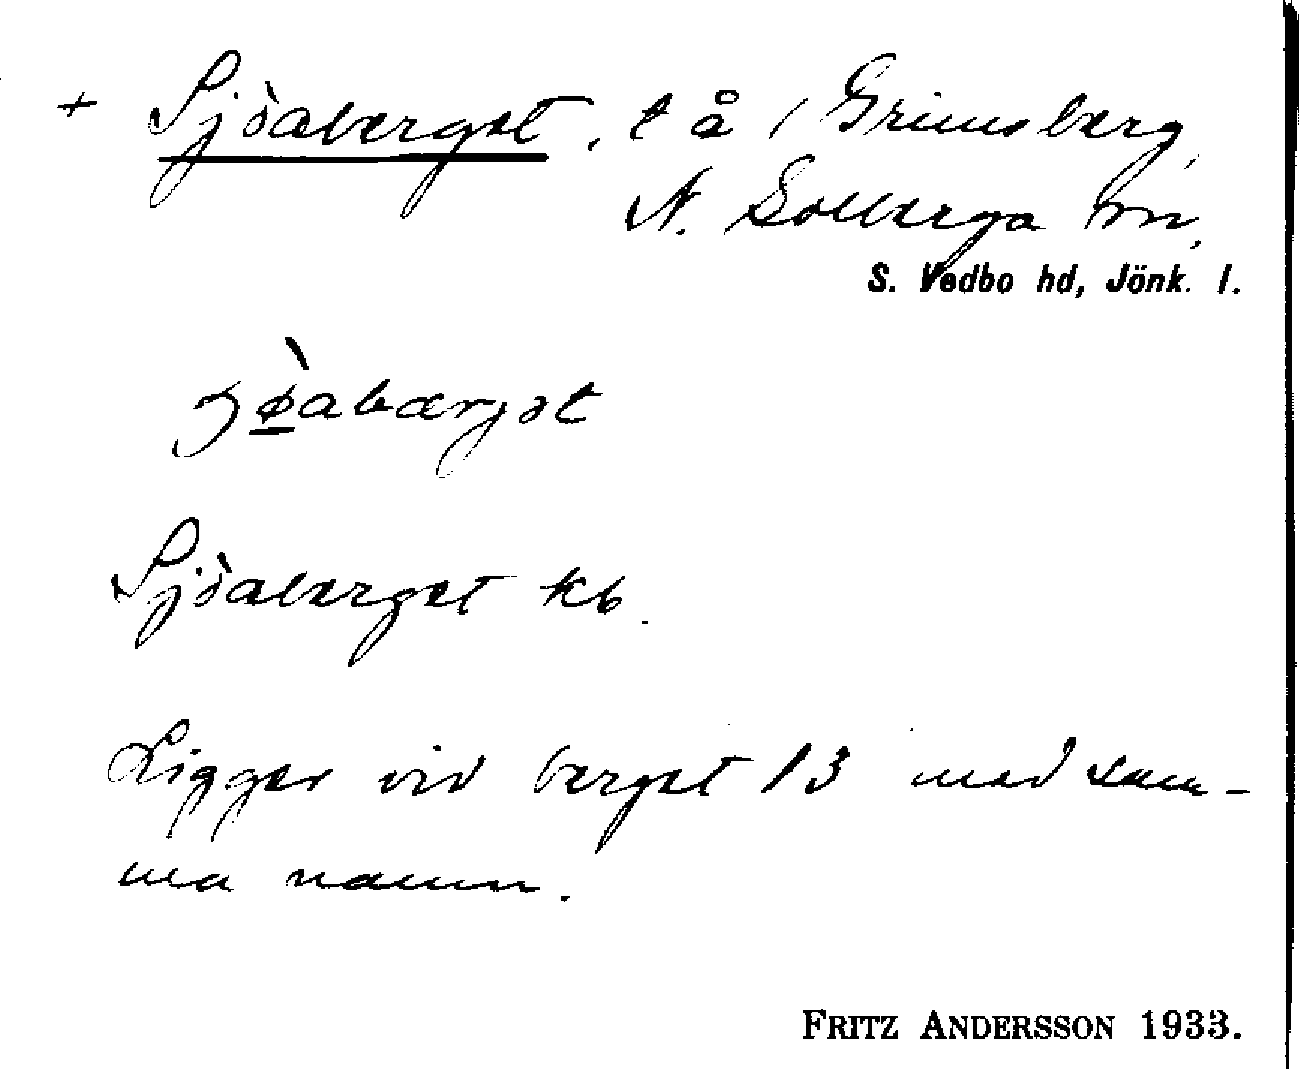 + Sjöaberget, t å / Grimsberg,
N. Solberga sn,
S. Vedbo hd, Jönk. l.
Sjöaberget kb.
Ligger vid berget 13 med sam-
ma namn.
FRITZ ANDERSSON 1933.